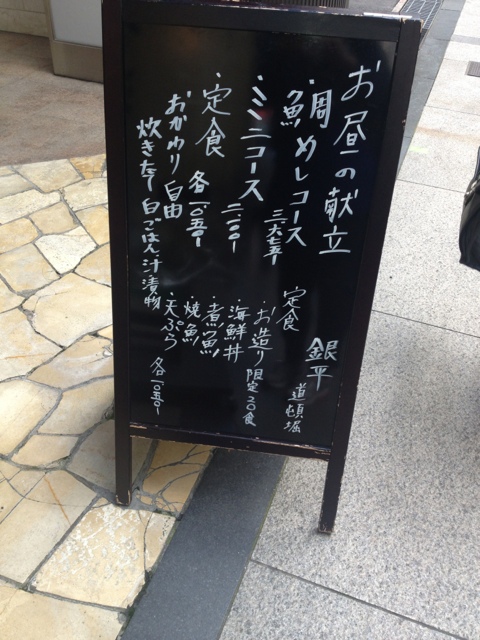 お昼の献立
・鯛めしコース
三六七五-
・ミニコース
二一〇〇-
・定食
各一〇五〇-
おかわり自由
炊きたて白ごはん、汁、漬物
銀平
道頓堀
定食
・お造り
限定20食
・海鮮丼
・煮魚
・焼魚
・天ぷら
各一〇五〇-